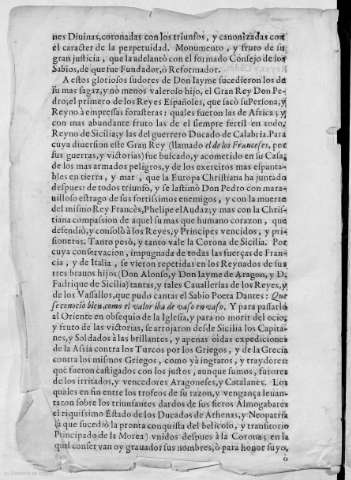 nes Diuinas, coronadas con los triunfos, y canonizadas con
el caracter de la perpetuidad. Monumento, y fruto de su
gran justicia, que la adelantò con el formado Consejo de los
Sabios, de que fue Fundador, ò Reformador.
A estos gloriosos sudores de Don Jayme sucedieron los de
su mas sagaz, y no menos valeroso hijo, el Gran Rey Don Pe-
dro, el primero de los Reyes Españoles, que sacò su Persona, y
Reyno à empressas forasteras: quales fueron las de Africa; y
con mas abundante fruto las de el siempre fertil en todo,
Reyno de Sicilia; y las del guerrero Ducado de Calabria. Para
cuya diuersion este Gran Rey (llamado el de los Franceses, por
sus guerras, y victorias) fue buscado, y acometido en su Casa
de los mas armados peligros, y de los exercitos mas espanta-
bles en tierra, y mar, que la Europa Christiana ha juntado
despues: de todos triunfò, y se lastimò Don Pedro con mara-
uilloso estrago de sus fortissimos enemigos, y con la muerte
del mismo Rey Francès, Phelipe el Audaz; y mas con la Chris-
tiana compassion de aquel su mas que humano corazon, que
defendiò, y consolò à los Reyes, y Principes vencidos, y pri-
sioneros. Tanto pesò, y tanto vale la Corona de Sicilia. Por
cuya conseruacion, impugnada de todas las fuerças de Fran-
cia, y de Italia, se vieron repetidas en los Reynados de sus
tres brauos hijos (Don Alonso, y Don Jayme de Aragon, y D.
Fadrique de Sicilia) tantas, y tales Cauallerias de los Reyes, y
de los Vassallos, que pudo cantar el Sabio Poeta Dantes: Que
se conociò bien, como el valor iba de vaso en vaso. Y para passarlo
al Oriente en obsequio de la Iglesia, y para no morir del ocio,
y fruto de las victorias, se arrojaron desde Sicilia los Capita-
nes, y Soldados à las brillantes, y apenas oidas expediciones
de la Assia contra los Turcos por los Griegos, y de la Grecia
contra los mismos Griegos, como yà ingratos, y traydores:
que fueron castigados con los justos, aunque sumos, furores
de los irritados, y vencedores Aragoneses, y Catalanes. Los
quales en fin entre los trofeos de su razon, y vengança leuan-
taron sobre los triunfantes dardos de sus fieros Almogabares
el riquissimo Estado de los Ducados de Athenas, y Neopatria
(à que sucediò la pronta conquista del belicoso, y transitorio
Principado de la Morea) vnidos despues à la Corona; en la
qual conseruan oy grauador sus nombres, ò para honor suyo,
ò